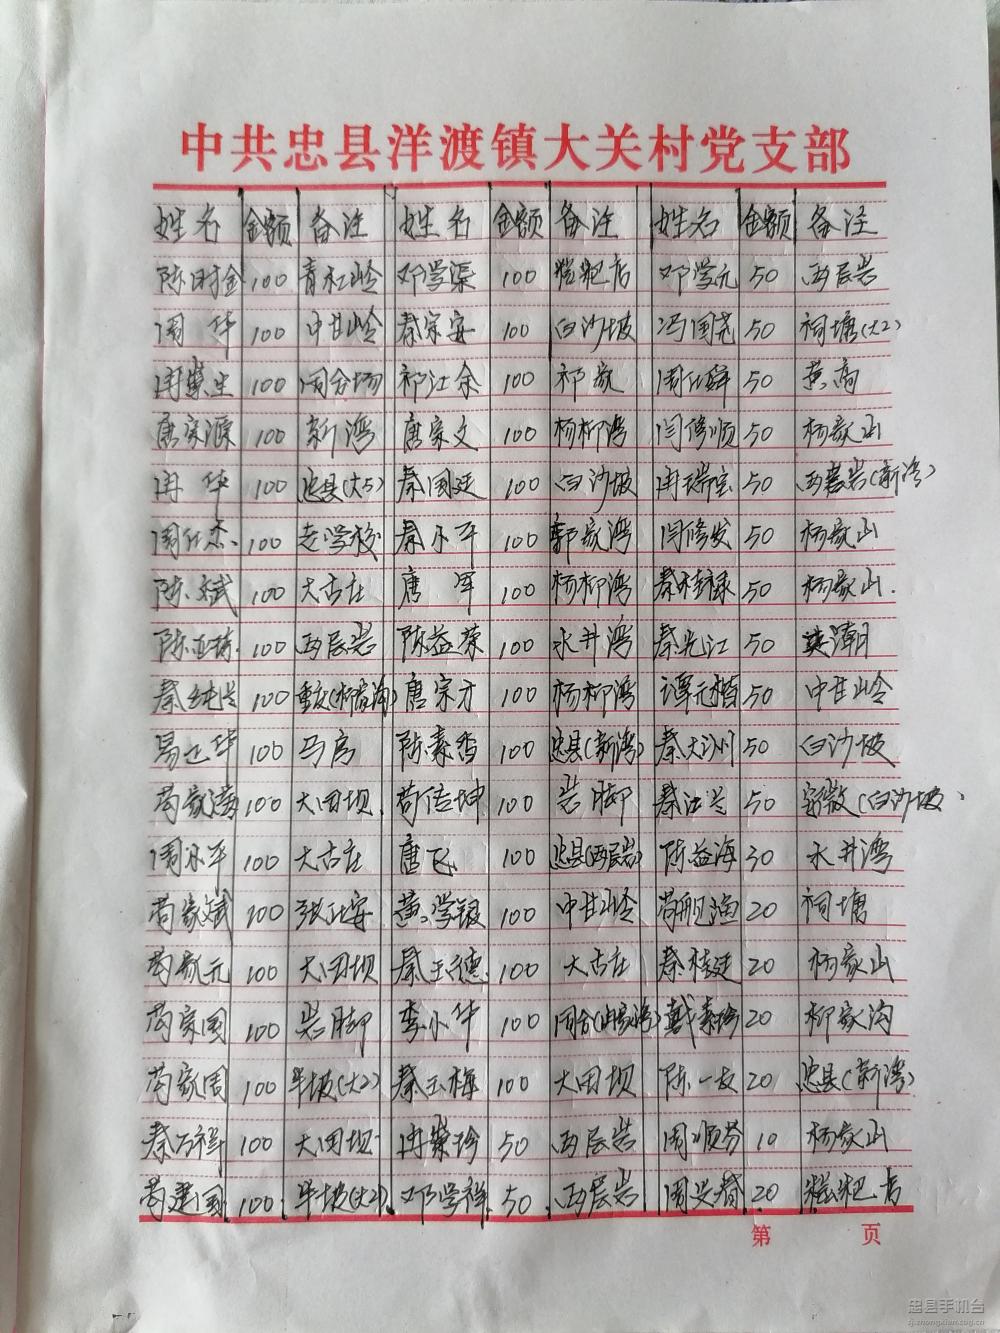 中共忠县洋渡镇大关村党支部
姓名 金额 备注 姓名 金额 备注 姓名 金额 备注
陈时金 100 青杠岭 邓学渠 100 糍粑店 邓学元 50 两层岩
周华 100 中甘岭 秦宗安 100 白沙坡 冯国尧 50 祠塘(大2)
冉荣生 100 周合场 祁江余 100 祁家 周仕舜 50 黄高
唐家源 100 新湾 唐家文 100 杨柳湾 闫修顺 50 杨家山
冉华 100 忠县(大5) 秦国廷 100 白沙坡 冉瑞宝 50 两层岩(新湾)
周仕杰 100 走学校 秦小平 100 郭家湾 闫修发 50 杨家山
陈斌 100 大古庄 唐军 100 杨柳湾 秦桂禄 50 杨家山
陈亚琼 100 两层岩 陈益荣 100 水井湾 秦光江 50
秦纯兴 100 重庆(柳家沟) 唐宗才 100 杨柳湾 谭元楷 50 中甘岭
易述华 100 马房 陈素香 100 忠县(新湾) 秦大川 50 白沙坡
苟家涛 100 大田坝 苟信坤 100 岩脚 秦法兴 50 安徽(白沙坡
周小平 100 大古庄 唐飞 100 忠县(两层岩) 陈益海 30 水井湾
苟家斌 100 张正安 黄学银 100 中甘岭 20 祠塘
苟家元 100 大田坝 秦玉德 100 大古庄 秦桂廷 20 杨家山
苟家国 100 岩脚 李小华 100 戴素珍 20 柳家沟
苟家周 100 半坡(大2) 秦玉梅 100 大田坝 陈一友 20 忠县(新湾)
秦万祥 100 大田坝 冉荣珍 50 两层岩 周顺芬 10 杨家山
苟建国 100 半坡(大2) 邓学祥 50 两层岩 周兴春 20 糍粑店
第 页
忠县手机台
sj.zhongxian.cqg.cn